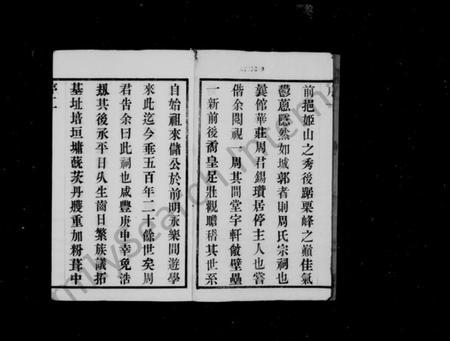 序
前挹姬山之秀後踞栗峰之巔佳氣
鬱蔥隱然如城郭者則周氏宗祠也
館華莊周君錫瓚居停主人也嘗
偕余閱視一周其間堂宇軒敞壁壘
一新前後矞皇足壯觀瞻稽其世系
自始祖來儲公於前明永樂間遊學
來此迄今垂五百年二十餘世矣周
君告余曰此祠也咸豐庚申屢免浩
其後承平日久生齒日繁族議拓
基址培垣墉蔇茨丹雘重加粉葺中